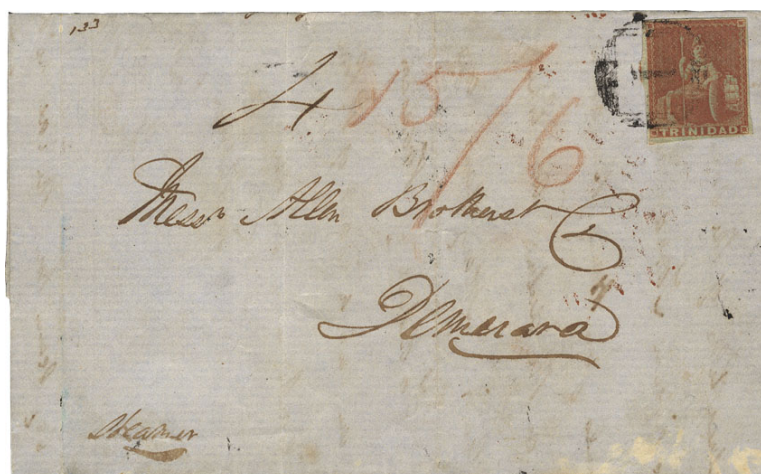 133
4
15/6
TRINIDAD
Messrs Allen Brothers & Co
Demerara
Steamer